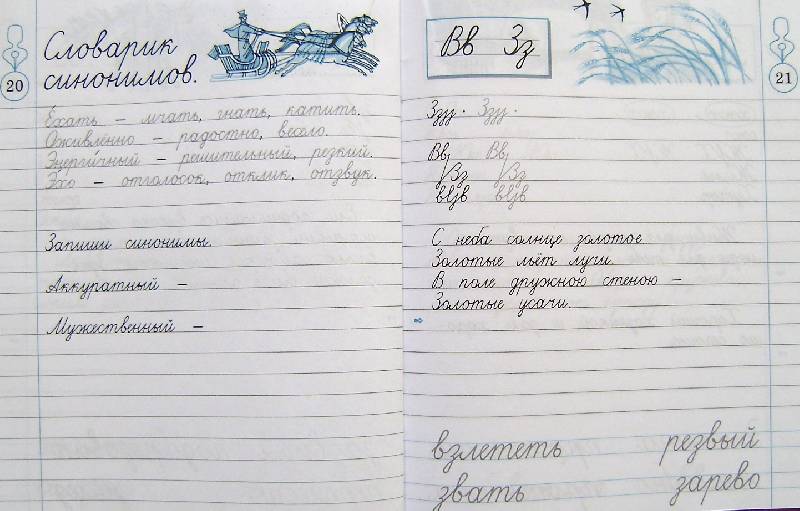 Словарик
синонимов.
20
Ехать – мчать, гнать, катить.
Оживлённо – радостно, весело.
Энергичный – решительный, резкий.
Эхо – отголосок, отклик, отзвук.
Запиши синонимы.
Аккуратный –
Мужественный –
Вв Зз
21
С неба солнце золотое
Золотые льёт лучи.
В поле дружною стеною –
Золотые усачи.
взлететь резвый
звать зарево